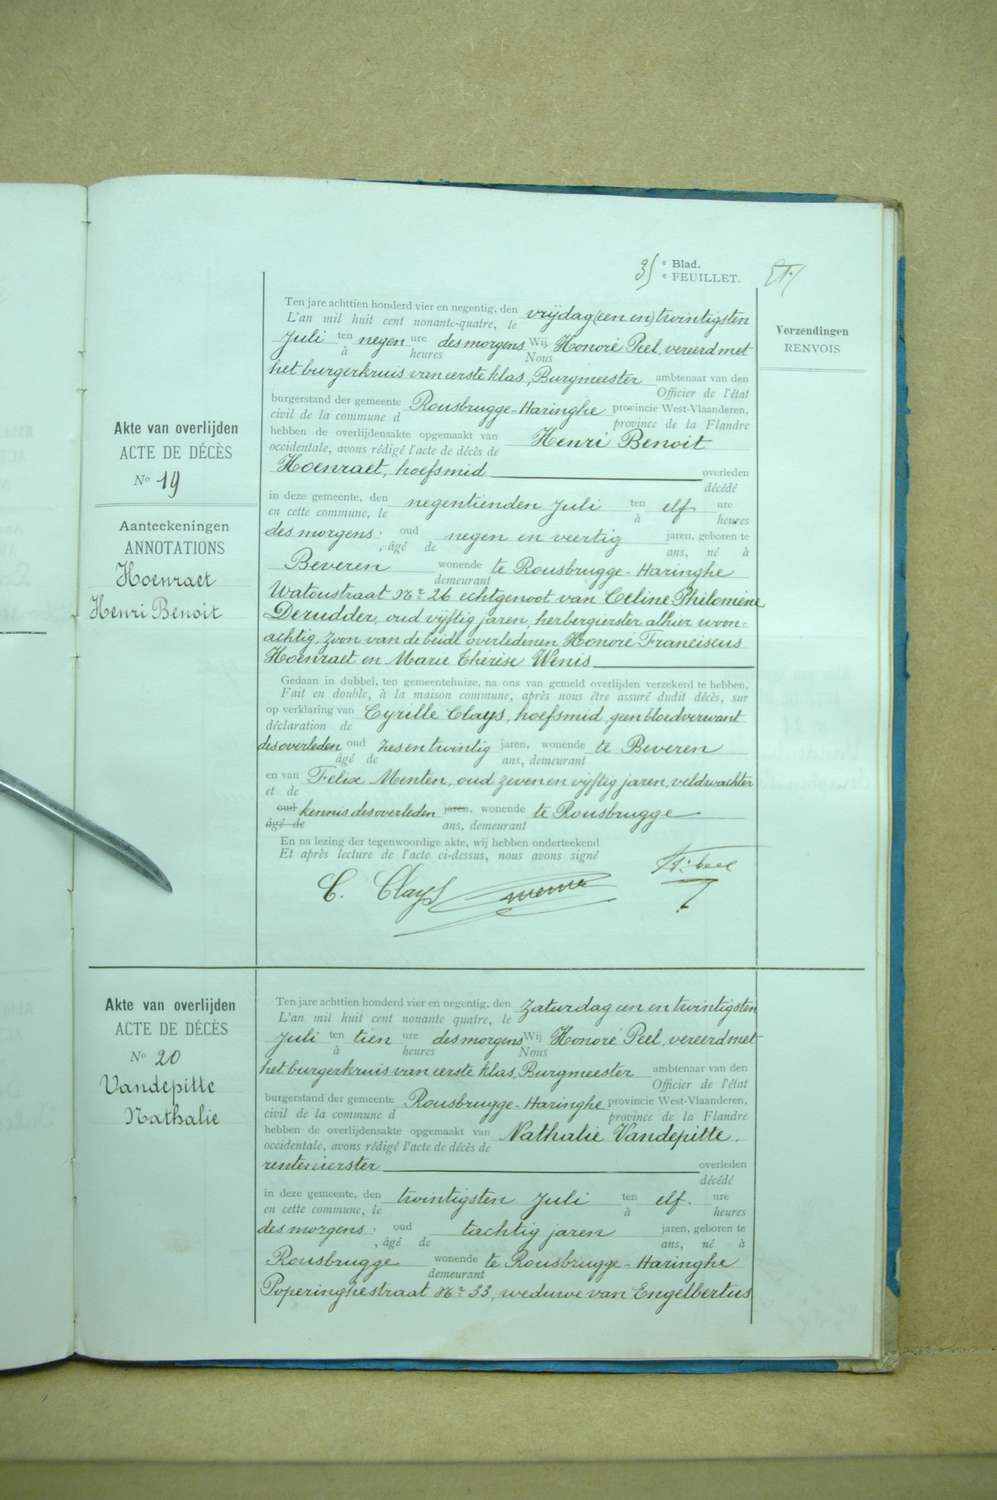 35 e Blad.
e FEUILLET.
Verzendingen
RENVOIS
Akte van overlijden
ACTE DE DÉCÈS
No 19
Aanteekeningen
ANNOTATIONS
Hoenraet
Henri Benoit
Ten jare achttien honderd vier en negentig, den vrijdag (een en) twintigsten
L'an mil huit cent nonante-quatre, le
Juli ten negen ure des morgens Wij Honoré Peel, vereerd met
à heures Nous
het burgerkruis van eerste klas, Burgmeester ambtenaar van den
Officier de l'état
burgerstand der gemeente Rousbrugge-Haringhe provincie West-Vlaanderen,
civil de la commune d province de la Flandre
hebben de overlijdensakte opgemaakt van Henri Benoit
occidentale, avons rédigé l'acte de décès de
Hoenraet, hoefsmid overleden
décédé
in deze gemeente, den negentienden Juli ten elf ure
en cette commune, le à heures
des morgens: oud negen en veertig jaren, geboren te
, âgé de ans, né à
Beveren wonende te Rousbrugge-Haringhe
demeurant
Watoustraat No 26 echtgenoot van Celine Philomene
Derudder, oud vijftig jaren, herbergierster alhier woon-
achtig, zoon van de beide overledenen Honoré Franciscus
Hoenraet en Marie Thérèse Wenis
Gedaan in dubbel, ten gemeentehuize, na ons van gemeld overlijden verzekerd te hebben,
Fait en double, à la maison commune, après nous être assuré dudit décès, sur
op verklaring van Cyrille Clays, hoefsmid, geen bloedverwant
déclaration de
des overleden oud zes en twintig jaren, wonende te Beveren
âgé de ans, demeurant
en van Felix Menten, oud zeven en vijftig jaren, veldwachter
et de
oud kennis des overleden jaren, wonende te Rousbrugge
âgé de ans, demeurant
En na lezing der tegenwoordige akte, wij hebben onderteekend
Et après lecture de l'acte ci-dessus, nous avons signé
C. Clays H. Peel
Akte van overlijden
ACTE DE DÉCÈS
No 20
Vandepitte
Nathalie
Ten jare achttien honderd vier en negentig, den Zaturdag een en twintigsten
L'an mil huit cent nonante quatre, le
Juli ten tien ure des morgens Wij Honoré Peel, vereerd met
à heures Nous
het burgerkruis van eerste klas, Burgmeester ambtenaar van den
Officier de l'état
burgerstand der gemeente Rousbrugge-Haringhe provincie West-Vlaanderen,
civil de la commune d province de la Flandre
hebben de overlijdensakte opgemaakt van Nathalie Vandepitte,
occidentale, avons rédigé l'acte de décès de
rentenierster overleden
décédé
in deze gemeente, den twintigsten Juli ten elf ure
en cette commune, le à heures
des morgens: oud tachtig jaren jaren, geboren te
, âgé de ans, né à
Rousbrugge wonende te Rousbrugge-Haringhe
demeurant
Poperinghestraat No 33, weduwe van Engelbertus